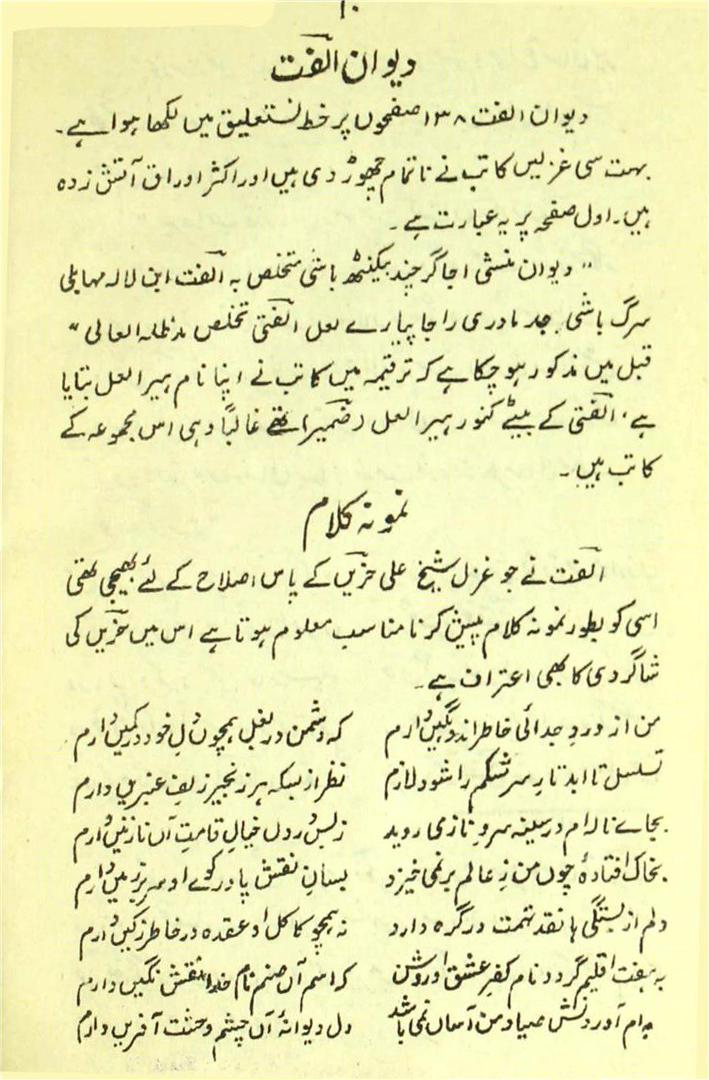 ۱۰
دیوان الفت
دیوان الفت ۱۳۸ صفحوں پر خط نستعلیق میں لکھا ہوا ہے۔
بہت سی غزلیں کاتب نے ناتمام چھوڑ دی ہیں اور اکثر اوراق آتش زدہ
ہیں۔ اول صفحہ پر یہ عبارت ہے۔
" دیوان منشی اجاگر چند بیکنٹھ باشی متخلص بہ الفت ابن لالہ مہابلی
سرگ باشی۔ جد مادری راجا پیارے لعل الفتی تخلص مدظلہ العالی "
قبل میں مذکور ہو چکا ہے کہ ترقیمہ میں کاتب نے اپنا نام ہیرا لعل بتایا
ہے، الفتی کے بیٹے کنور ہیرا لعل (ضمیر) تھے غالباً وہی اس مجموعہ کے
کاتب ہیں۔
نمونہ کلام
الفت نے جو غزل شیخ علی حزیں کے پاس اصلاح کے لئے بھیجی تھی
اسی کو بطور نمونہ کلام پیش کرنا مناسب معلوم ہوتا ہے اس میں حزیں کی
شاگردی کا بھی اعتراف ہے۔
من از دردِ جدائی خاطر اندوہگیں دارم کہ دشمن در بغل ہمچوں دلِ خود در کمیں دارم
تسلسل تا ابد تارِ سرشکم را شود لازم نظر از بسکہ بر زنجیر زلفِ عنبریں دارم
بجاے نالہ ام در سینہ سروِ نازی روید زبس در دل خیالِ قامتِ آں نازنیں دارم
بخاک افتادۂ چوں من زِ عالم بر نمی خیزد بسانِ نقش پا در کوے او سر بر زمیں دارم
دلم از بستگی ہا نقد تہمت در گرہ دارد نہ ہمچو کاکل او عقدہ در خاطر ز کیں دارم
بہ ہفت اقلیم گردد نام کفرِ عشق او روشن کہ اسم آں صنم نام خدا نقش نگیں دارم
بدام آوردنش صیاد من آساں نمی باشد دل دیوانۂ آں چشم وحشت آفریں دارم